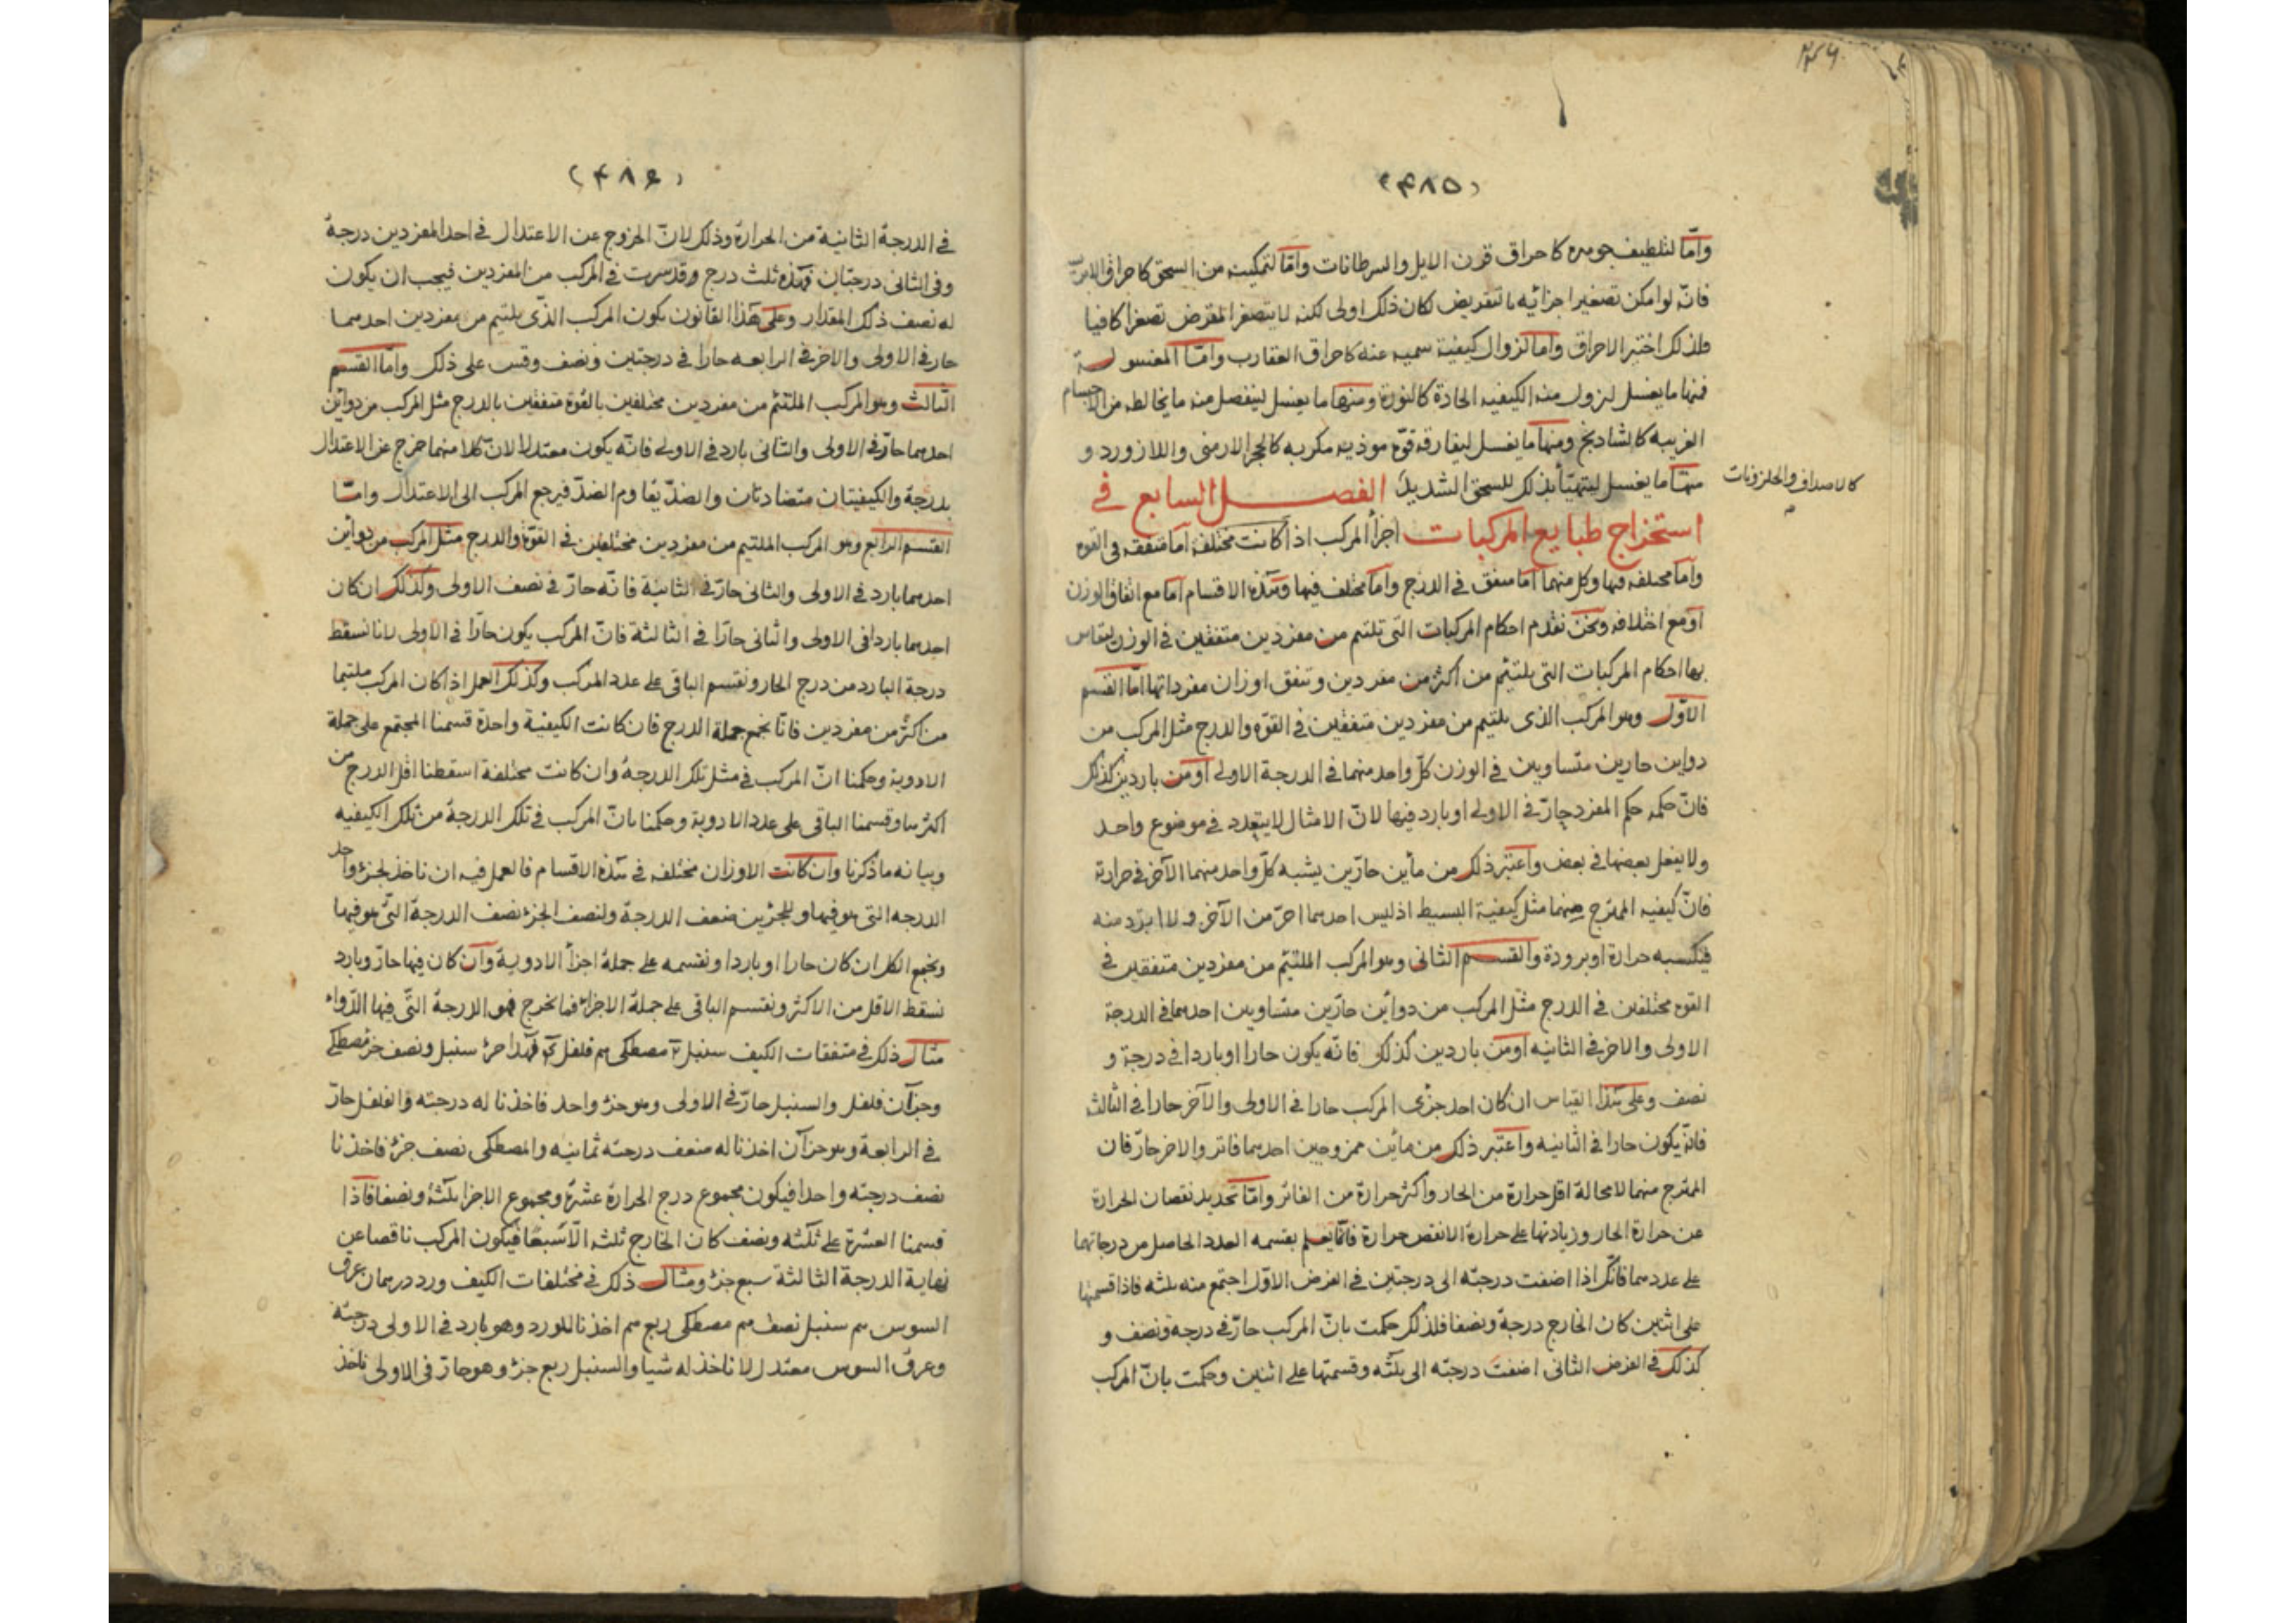 (٤٨٥)
وامّا لتلطيف جوهره كاحراق قرن الايل والسرطانات وامّا لتمكينه من السحق كاحراق الابريسم
فانّه لو امكن تصغير اجزائه بالتقريض لكان ذلك اولى لكنه لا يتصغر بالقرض تصغرا كافيا
فلذلك اختير الاحراق وامّا لزوال كيفية سمية عنه كاحراق العقارب وامّا المغسولة
فمنها ما يغسل ليزول منه الكيفيه الحادة كالنورة ومنها ما يغسل لينفصل منه ما يخالطه من الاجسام
الغريبه كالشادنج ومنها ما يغسل ليفارقه قوّة موذيه مكربه كالحجر الارمنى واللازورد و
منها ما يغسل ليتهيّأ بذلك للسحق الشديد الفصل السابع في
كالاصداف والحلزونات
استخراج طبايع المركبات اجزأ المركب اذا كانت مختلفة امّا متفقه فى القوه
وامّا مختلفه فيها وكل منهما امّا متفق فى الدرج وامّا مختلف فيها وهذه الاقسام امّا مع اتفاق الوزن
او مع اختلافه ونحن نقدم احكام المركبات التى تلتئم من مفردين متفقين فى الوزن ليقاس
بها احكام المركبات التى يلتئم من اكثر من مفردين وتتفق اوزان مفرداتها امّا القسم
الاوّل وهو المركب الذى يلتئم من مفردين متفقين فى القوّه والدرج مثل المركب من
دواين حارين متساويين فى الوزن كلّ واحد منهما فى الدرجة الاولى او من باردين كذلك
فانّ حكمه حكم المفرد حارّ فى الاولى او بارد فيها لانّ الامثال لا يتعدد فى موضوع واحد
ولا يفعل بعضها فى بعض واعتبر ذلك من مأين حارّين يشبه كلّ واحد منهما الآخر فى حرارة
فانّ كيفيه الممتزج منهما مثل كيفية البسيط اذ ليس احدهما احرّ من الآخر ولا ابرد منه
فيكسبه حرارة او برودة والقسم الثانى وهو المركب الملتئم من مفردين متفقين فى
القوه مختلفين فى الدرج مثل المركب من دوائين حارّين متساويين احدهما فى الدرجة
الاولى والاخر فى الثانيه او من باردين كذلك فانّه يكون حارا او باردا فى درجة و
نصف وعلى هذا القياس ان كان احد جزئى المركب حارا فى الاولى والآخر حارا فى الثالثه
فانّه يكون حارا فى الثانيه واعتبر ذلك من مائين ممزوجين احدهما فاتر والاخر حارّ فان
الممتزج منهما لا محالة اقل حرارة من الحار واكثر حرارة من الفاتر وامّا تحديد نقصان الحرارة
عن حرارة الحار وزيادتها على حرارة الانقص حرارة فانّما يعلم بقسمه العدد الحاصل من درجاتهما
على عددهما فانّك اذا اضفت درجته الى درجتين فى الفرض الاوّل اجتمع منه ثلثه فاذا قسمتها
على اثنين كان الخارج درجة ونصفا فلذلك حكمت بانّ المركب حارّ فى درجة ونصف و
كذلك فى الفرض الثانى اضفت درجته الى ثلثه وقسمتها على اثنين وحكمت بانّ المركب
(٤٨٦)
فى الدرجة الثانية من الحرارة وذلك لانّ الخروج عن الاعتدال فى احد المفردين درجة
وفى الثانى درجتان فهذه ثلث درج وقد سرت فى المركب من المفردين فيجب ان يكون
له نصف ذلك المقدار وعلى هذا القانون يكون المركب الذى يلتئم من مفردين احدهما
حار فى الاولى والاخر فى الرابعه حارا فى درجتين ونصف وقس على ذلك وامّا القسم
الثالث وهو المركب الملتئم من مفردين مختلفين بالقوة متفقين بالدرج مثل المركب من دوائين
احدهما حارّ فى الاولى والثانى بارد فى الاولى فانّه يكون معتدلا لانّ كلا منهما خرج عن الاعتدال
بدرجة والكيفيتان متضادتان والضدّ يقاوم الضدّ فيرجع المركب الى الاعتدال وامّا
القسم الرابع وهو المركب الملتيم من مفردين مختلفين فى القوة والدرج مثل المركب من دوائين
احدهما بارد فى الاولى والثانى حارّ فى الثانية فانّه حارّ فى نصف الاولى وكذلك ان كان
احدهما باردا فى الاولى والثانى حارّا فى الثالثة فانّ المركب يكون حارّا فى الاولى لانا نسقط
درجة البارد من درج الحار ونقسم الباقى على عدد المركب وكذلك العمل اذا كان المركب ملتيما
من اكثر من مفردين فانّا نجمع جملة الدرج فان كانت الكيفية واحدة قسمنا المجتمع على جملة
الادوية وحكمنا انّ المركب فى مثل تلك الدرجة وان كانت مختلفة اسقطنا اقل الدرج من
اكثرها وقسمنا الباقى على عدد الادوية وحكمنا بانّ المركب فى تلك الدرجة من تلك الكيفيه
وبيانه ما ذكرنا وان كانت الاوزان مختلفه فى هذه الاقسام فالعمل فيه ان ناخذ لجزء واحد
الدرجه التى هو فيها وللجزئين ضعف الدرجة ولنصف الجزء نصف الدرجة التى هو فيها
ونجمع الكل ان كان حارا او باردا ونقسمه على جملة اجزأ الادوية وان كان فيها حارّ وبارد
نسقط الاقل من الاكثر ونقسم الباقى على جملة الاجزاء فما يخرج فهو الدرجة التى فيها الدّواء
مثال ذلك فى متفقات الكيف سنبل مصطكى فلفل فهذا جزء سنبل ونصف جزء مصطكى
وجزآن فلفل والسنبل حارّ فى الاولى وهو جزء واحد فاخذنا له درجته والفلفل حارّ
فى الرابعة وهو جزآن اخذنا له ضعف درجته ثمانيه والمصطكى نصف جزء فاخذنا
نصف درجته واحدا فيكون مجموع درج الحرارة عشرة ومجموع الاجزا ثلثة ونصفا فاذا
قسمنا العشرة على ثلثه ونصف كان الخارج ثلثه الّا سُبعا فيكون المركب ناقصا عن
نهاية الدرجة الثالثة سبع جزء ومثال ذلك فى مختلفات الكيف ورد درهمان عرق
السوس سنبل نصف مصطكى ربع اخذنا للورد وهو بارد فى الاولى درجته
وعرق السوس معتدل لا ناخذ له شيا والسنبل ربع جزء وهو حارّ فى الاولى ناخذ